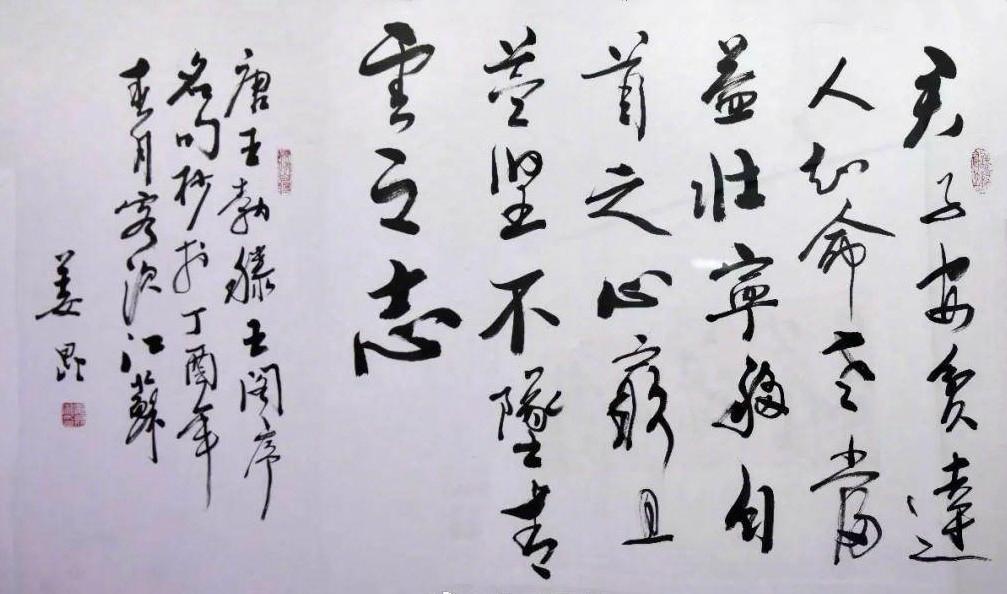 君子安貧達
人知命老當
益壯寧移白
首之心窮且
益堅不墜青
雲之志
唐王勃滕王閣序
名句抄於丁酉年
春月客次江蘇
姜昆